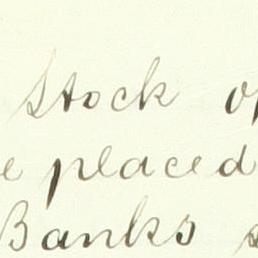 Stock of
e placed
Banks s